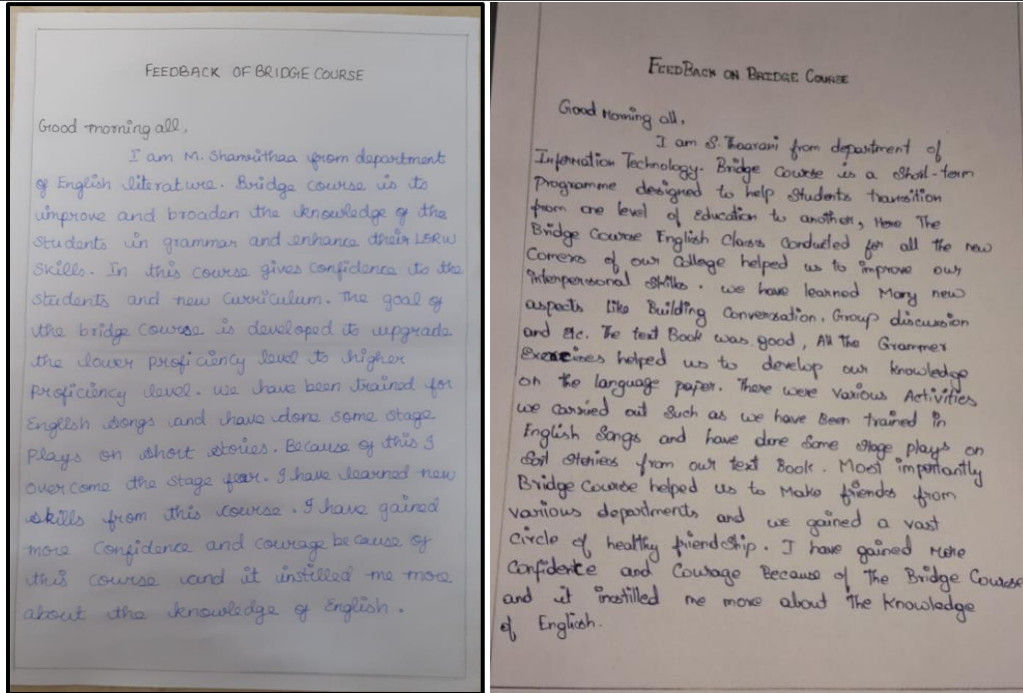 FEEDBACK OF BRIDGE COURSE
Good morning all,
I am M. Shamrithaa from department
of English literature. Bridge course is to
improve and broaden the knowledge of the
students in grammar and enhance their LSRW
Skills. In this course gives confidence to the
students and new Curriculum. The goal of
the bridge course is developed to upgrade
the lower proficiency level to higher
Proficiency level. We have been trained for
English songs and have done some stage
Plays on short stories. Because of this I
overcome the stage fear. I have learned new
skills from this course. I have gained
more Confidence and courage because of
this course and it instilled me more
about the knowledge of English.
FEEDBACK ON BRIDGE COURSE
Good Morning all,
I am S. Thaarani from department of
Information Technology. Bridge Course is a Short-term
Programme designed to help Students transition
from one level of Education to another, Here The
Bridge Course English Classes Conducted for all the new
Comers of our College helped us to improve our
interpersonal Skills. we have learned Many new
aspects like Building Conversation, Group discussion
and Etc. The text Book was good, All the Grammer
Exercises helped us to develop our knowledge
on the language paper. There were various Activities
we carried out Such as we have Been trained in
English Songs and have done Some stage plays on
from our text Book. Most importantly
Bridge Course helped us to Make friends from
various departments and we gained a vast
circle of healthy friendship. I have gained More
Confidence and Courage Because of The Bridge Course
and it instilled me more about The Knowledge
of English.